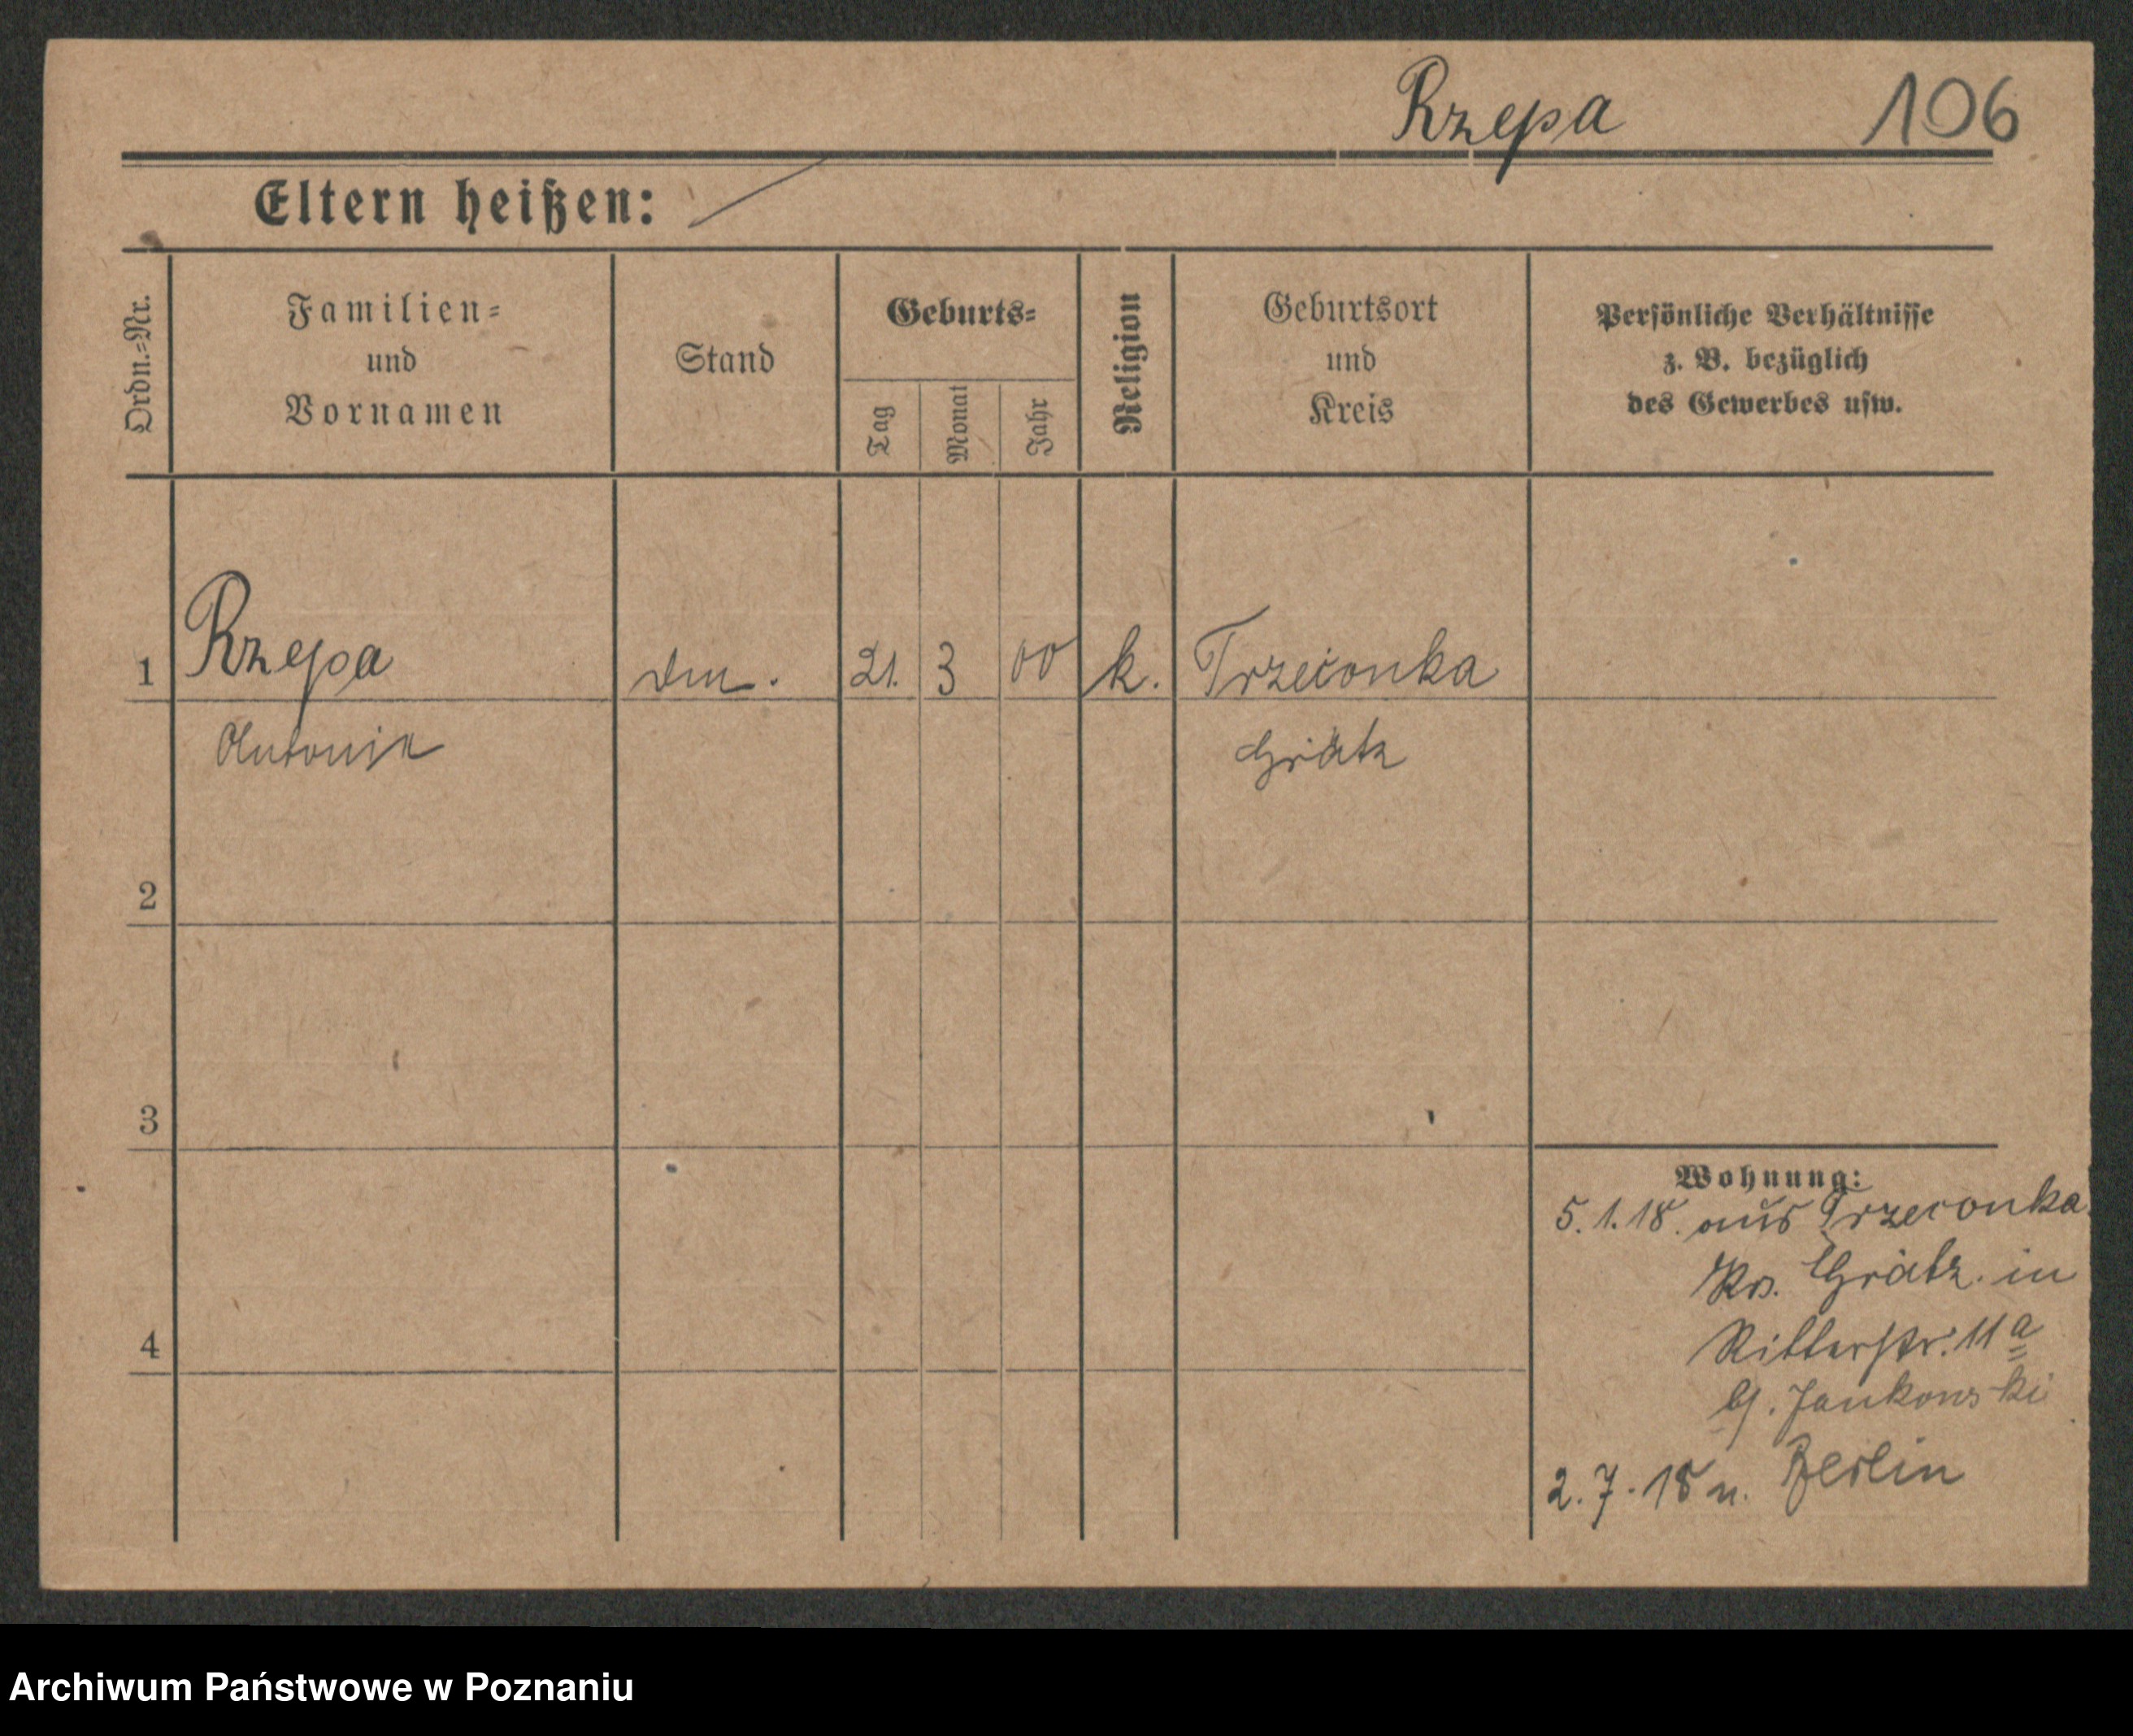 Rzepa 106
Eltern heißen:
Ordn.-Nr.
Familien-
und
Vornamen
Stand
Geburts-
Tag
Monat
Jahr
Religion
Geburtsort
und
Kreis
Persönliche Verhältnisse
z. B. bezüglich
des Gewerbes usw.
1 Rzepa 21. 3 00 k. Trzecionka
Antonie
Grätz
2
3
4
Wohnung:
5.1.18. aus Trzecionka
Krs. Grätz in
Ritterstr. 11a
b/. Jankowski
2.7.18 n. Berlin
Archiwum Państwowe w Poznaniu